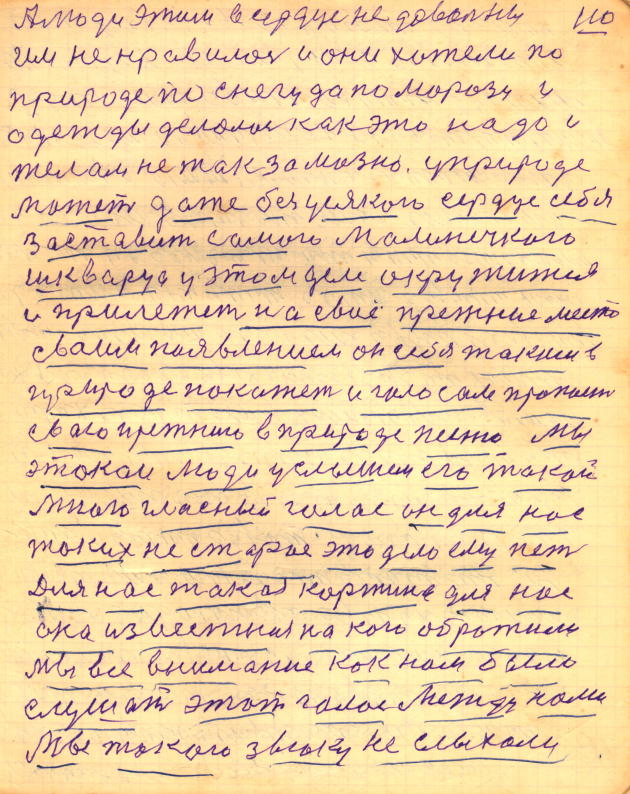 А люди этим в сердце не довольны 110
им не нравилос и они хотели по
природе по снегу да по морозу и
одежды делолос как это надо и
желали не так заможно. у природе
может даже без усякого сердце себя
заставит самого малинечкого
шкварца у этом деле окружится
и прилетет на своё прежние место
сваим появлением он себя таким в
природе покажет и голосам пропоет
сваго прежнию в природе песню Мы
этокаи люди услышим его такой
много гласный голас он для нос
таких не старое это дело ему петь
Для нас такоя кортина для нос
ока известная на кого обротили
мы все внимание кок ном было
слушать этот голас Между номи
Мы такого звюку не слыхали